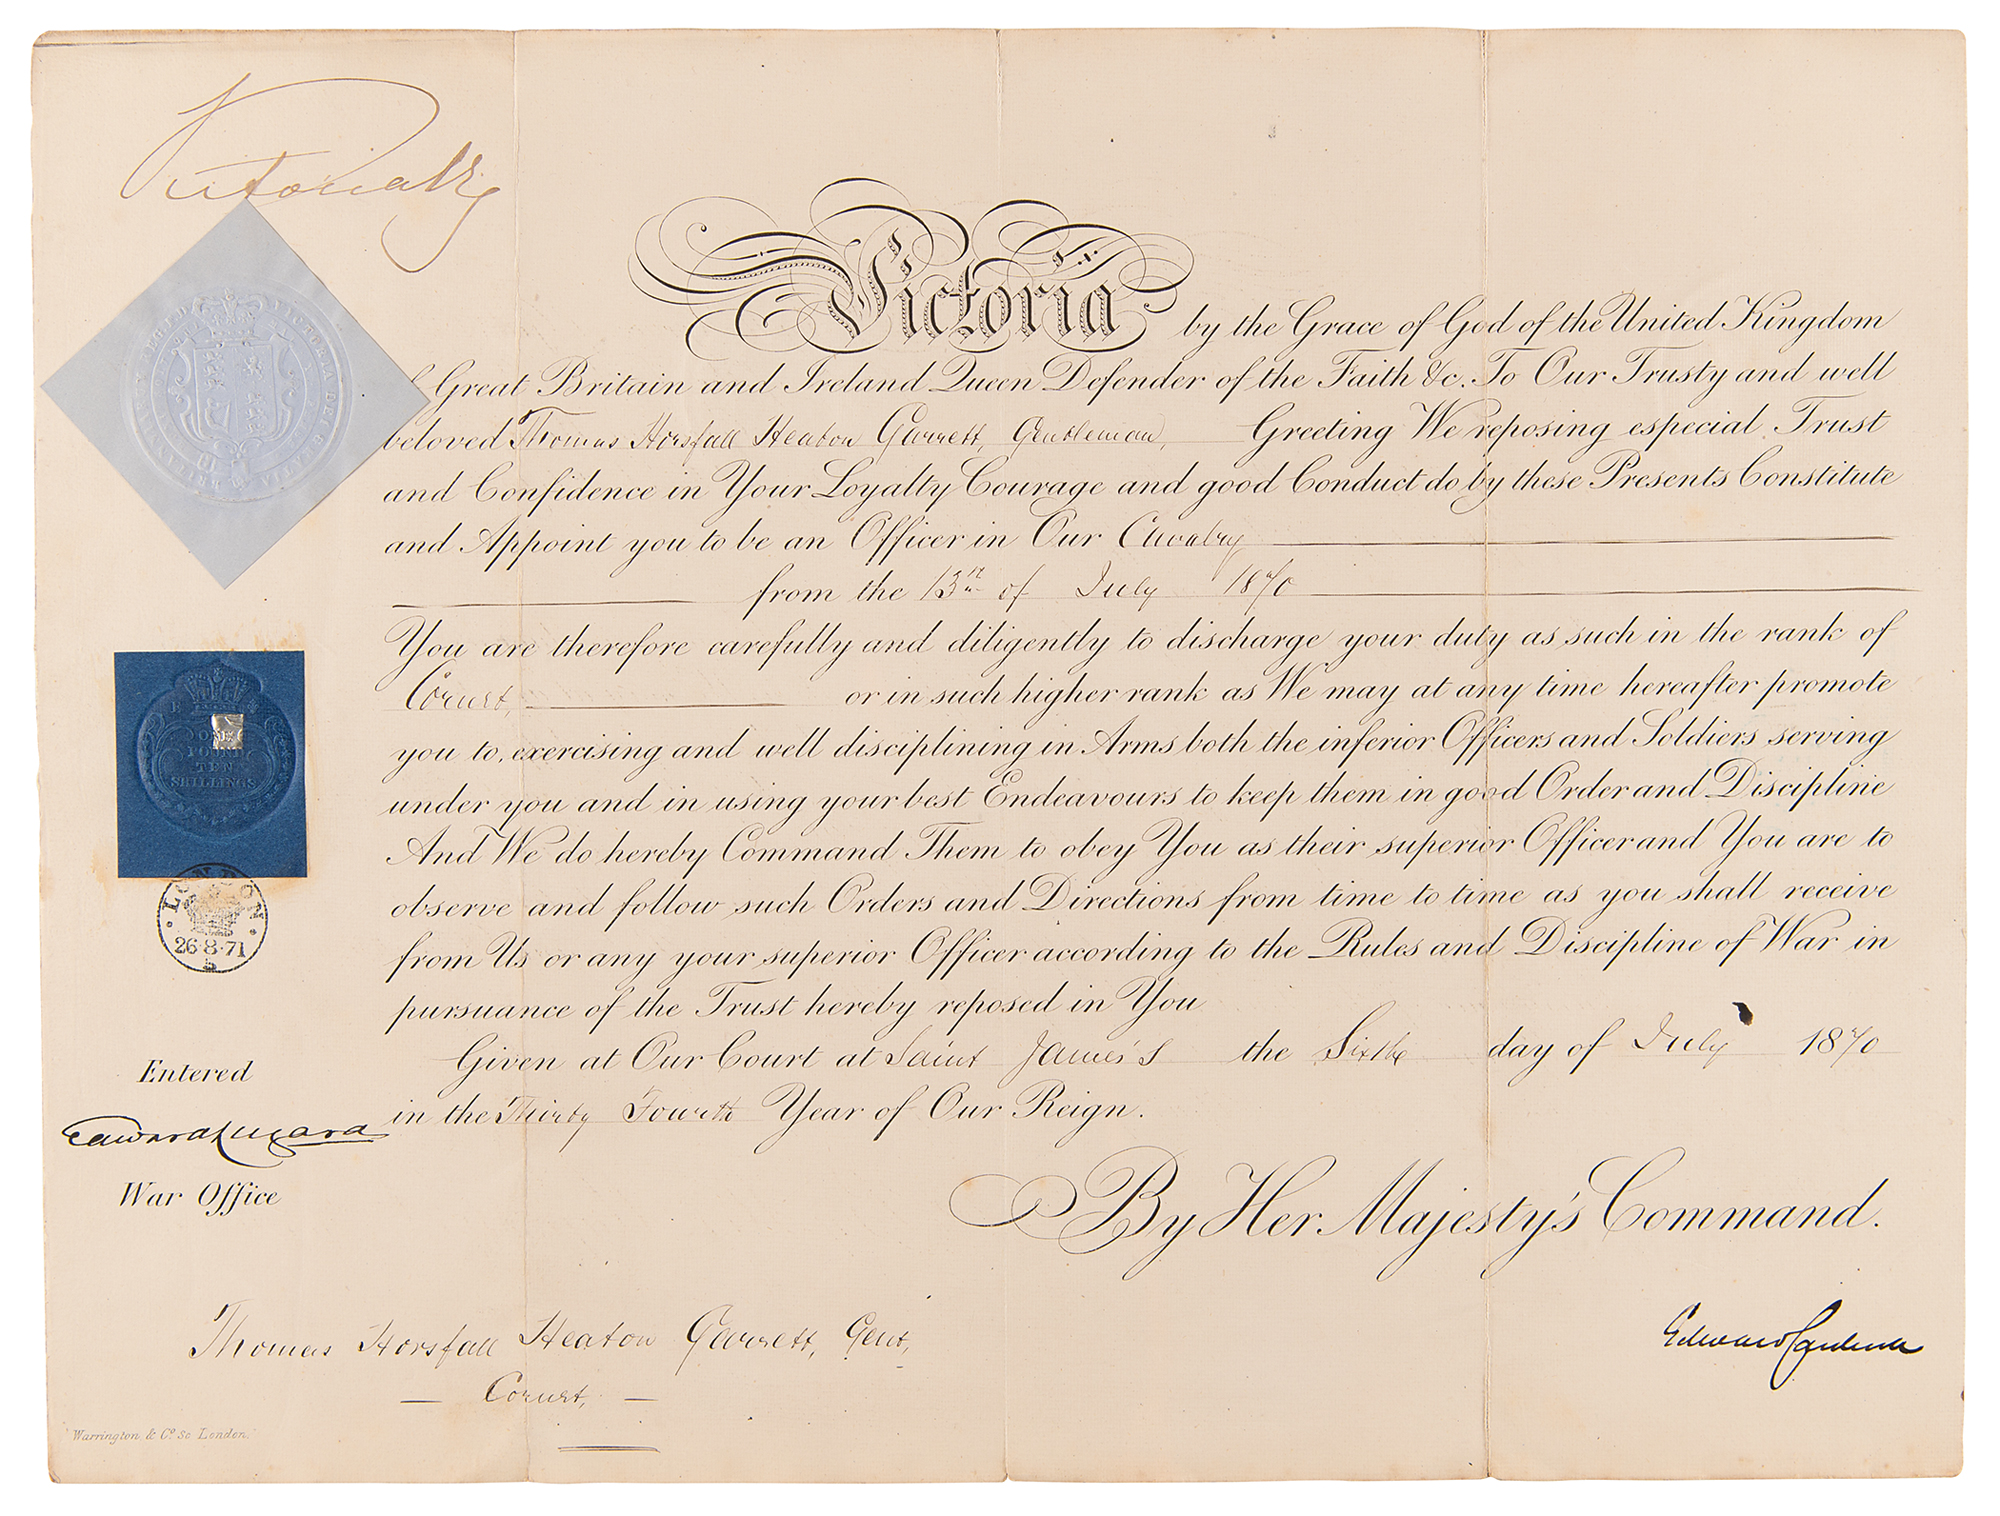 Victoria R
Victoria by the Grace of God of the United Kingdom
of Great Britain and Ireland Queen Defender of the Faith &c. To Our Trusty and well
beloved Thomas Horsfall Heaton Garrett, Gentleman, Greeting We reposing especial Trust
and Confidence in Your Loyalty Courage and good Conduct do by these Presents Constitute
and Appoint you to be an Officer in Our Cavalry
from the 13th of July 1870
You are therefore carefully and diligently to discharge your duty as such in the rank of
Cornet, or in such higher rank as We may at any time hereafter promote
you to, exercising and well disciplining in Arms both the inferior Officers and Soldiers serving
under you and in using your best Endeavours to keep them in good Order and Discipline
And We do hereby Command Them to obey You as their superior Officer and You are to
observe and follow such Orders and Directions from time to time as you shall receive
from Us or any your superior Officer according to the Rules and Discipline of War in
pursuance of the Trust hereby reposed in You
Given at Our Court at Saint James's the Sixth day of July 1870
in the Thirty Fourth Year of Our Reign.
By Her Majesty's Command.
Edward Cardwell
TEN
SHILLINGS
LONDON
26·8·71
Entered
Edward Lugard
War Office
Thomas Horsfall Heaton Garrett, Gent,
— Cornet, —
Warrington & Co. Sc London.